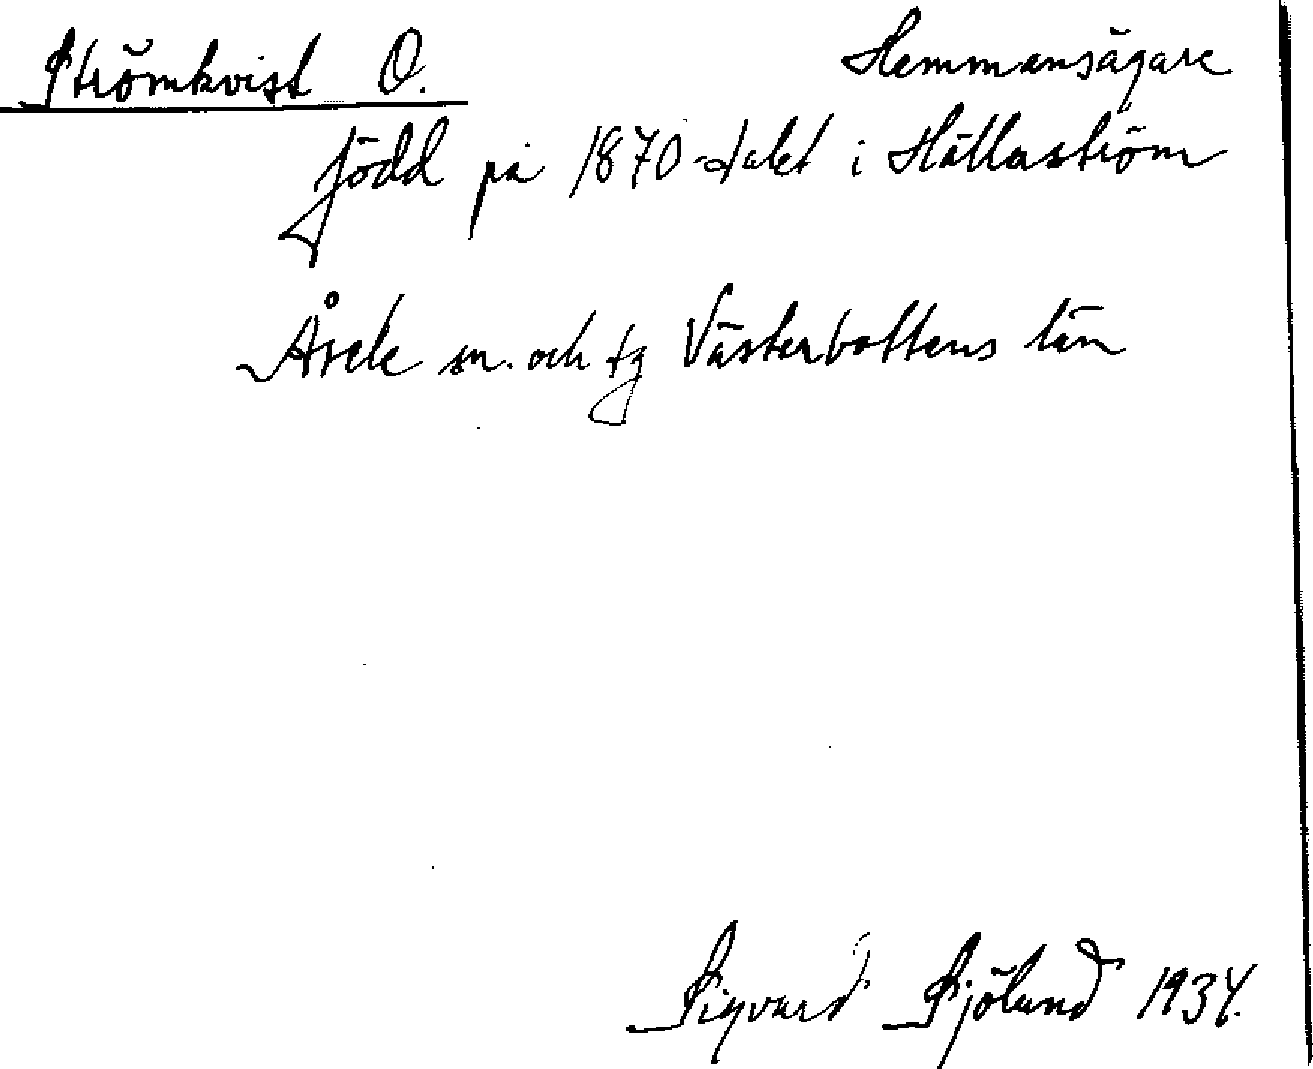 Strömkvist O. Hemmansägare
född på 1870-talet i Hällaström
Åsele sn. och tg Västerbottens län
Sigvard Sjölund 1934.